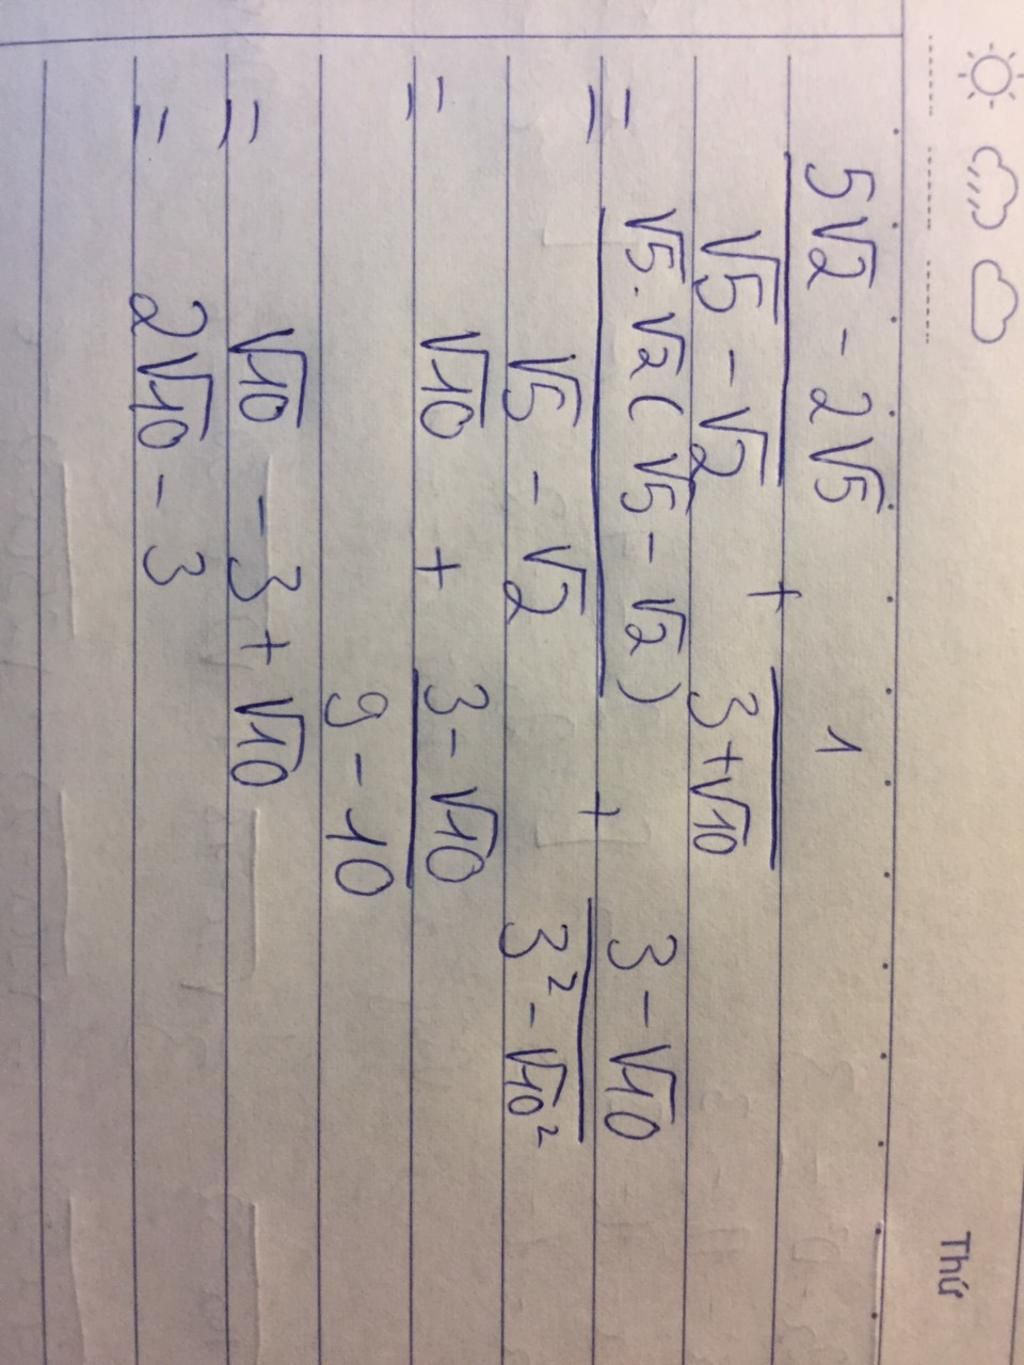 Thứ
5√2 - 2√5 1
+
√5 - √2 3+√10
= √5.√2(√5 - √2) + 3 - √10
√5 - √2 3² - √10²
= √10 + 3 - √10
9 - 10
= √10 - 3 + √10
= 2√10 - 3